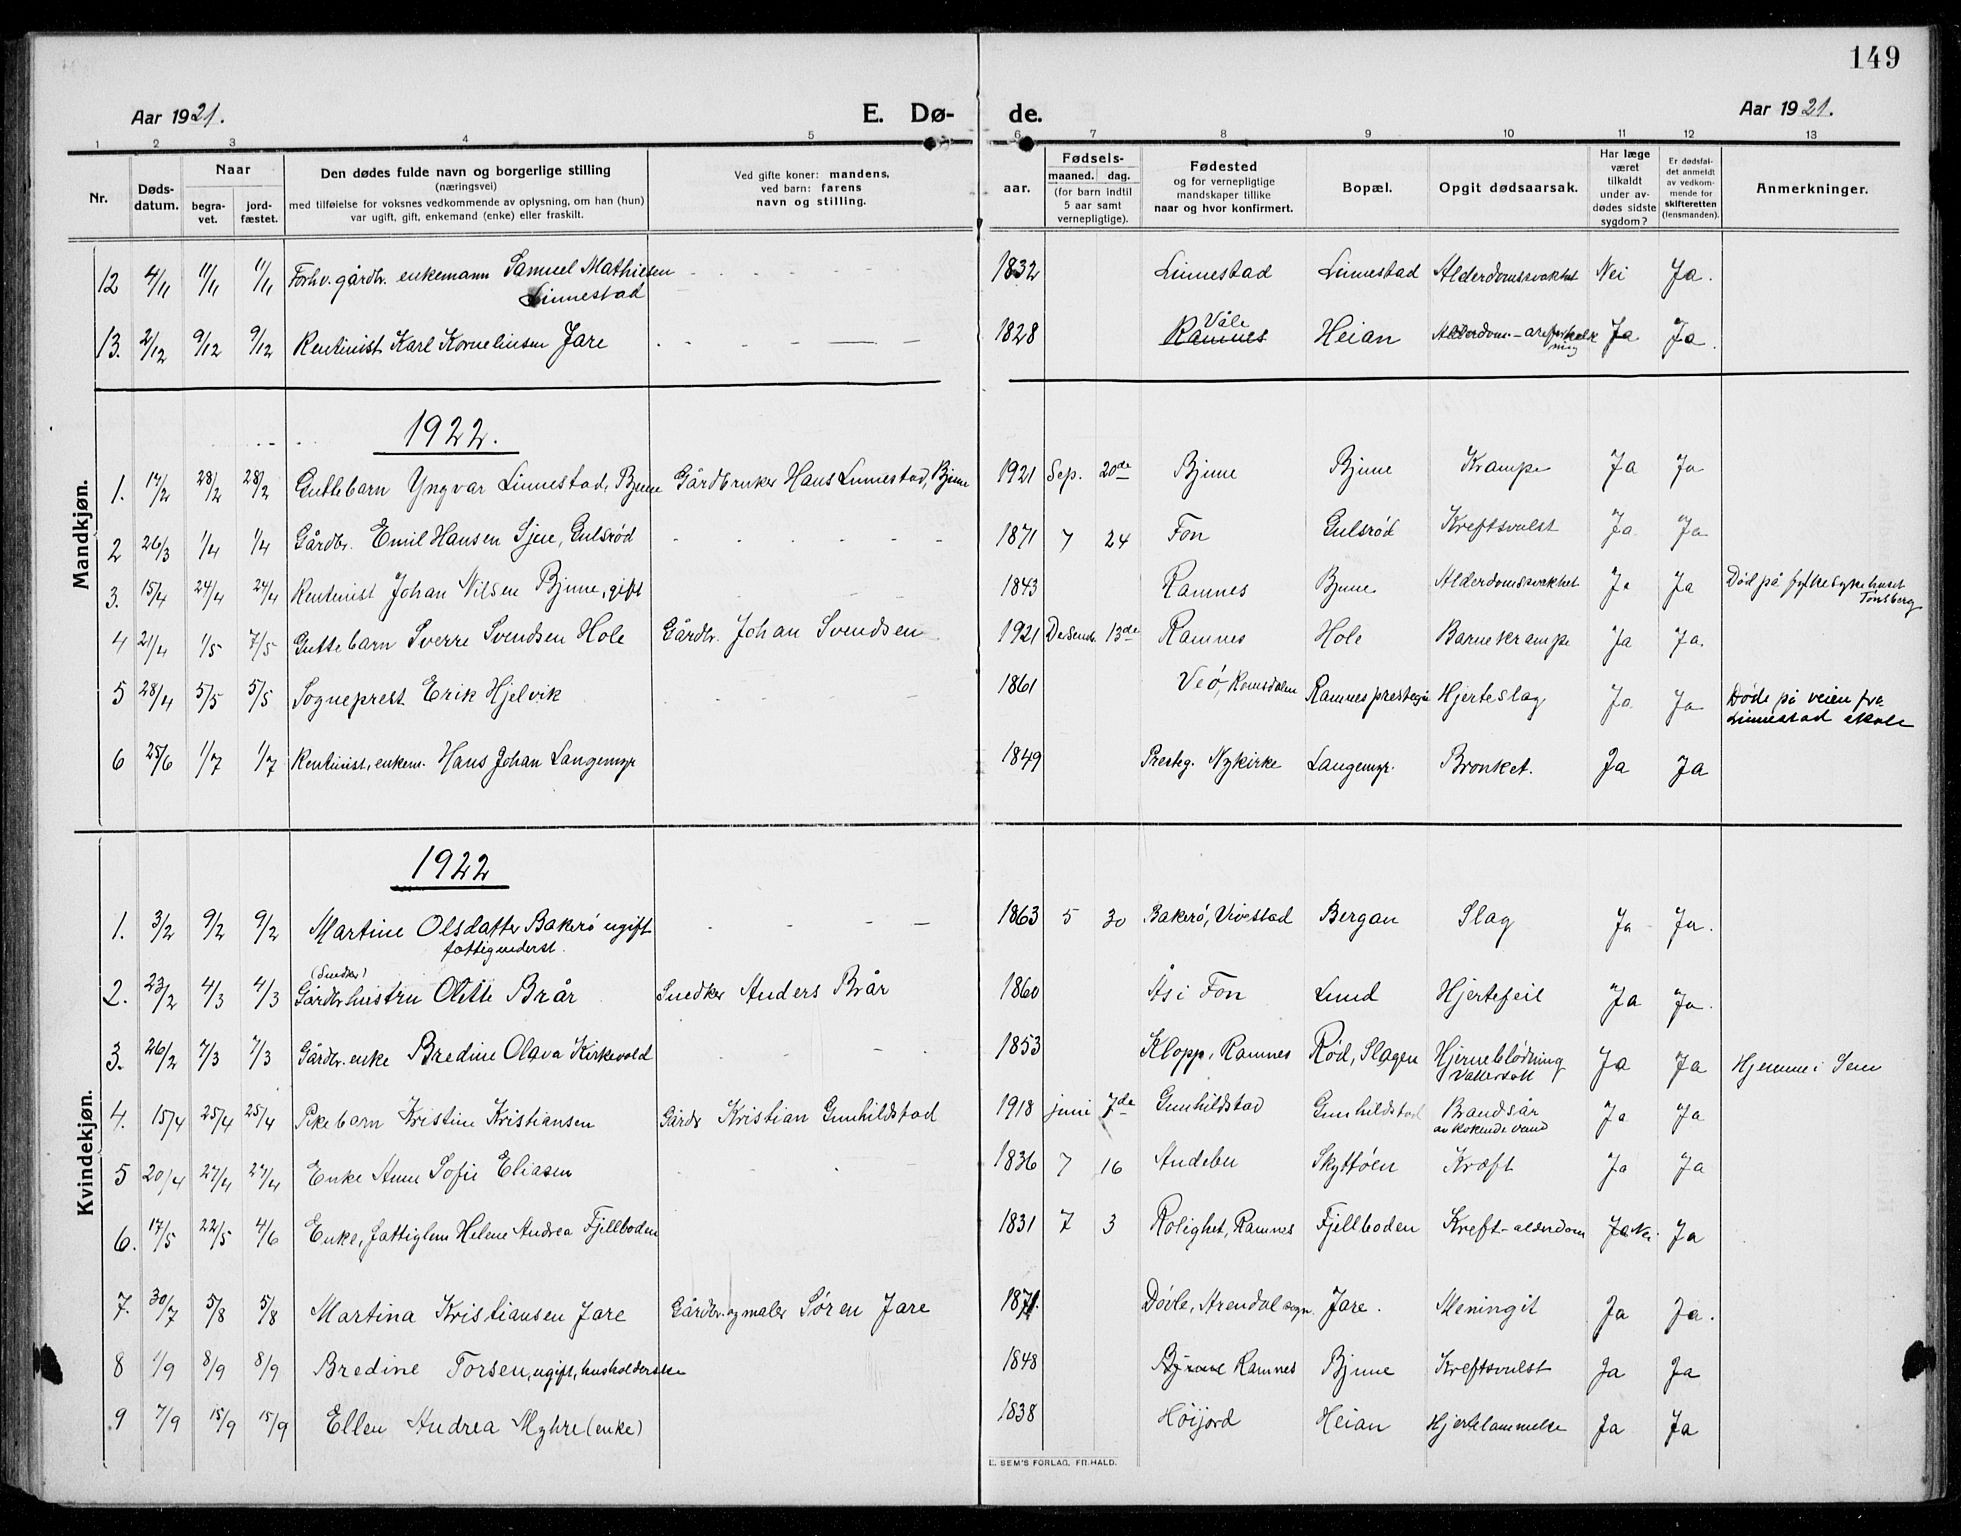 149
Aar 1921. E. Dø- de. Aar 1921.
1 2 3 4 5 6 7 8 9 10 11 12 13
Nr. Døds-datum. Naar begra-vet. jord-fæstet. Den dødes fulde navn og borgerlige stilling (næringsvei) med tilføielse for voksnes vedkommende av oplysning, om han (hun) var ugift, gift, enkemand (enke) eller fraskilt. Ved gifte koner: mandens, ved barn: farens navn og stilling. aar. Fødsels- maaned. dag. (for barn indtil 5 aar samt vernepligtige). Fødested og for vernepligtige mandskaper tillike naar og hvor konfirmert. Bopæl. Opgit dødsaarsak. Har læge været tilkaldt under av-dødes sidste sygdom? Er dødsfal-det anmeldt av vedkom-mende for skifteretten (lensmanden). Anmerkninger.
12 4/11 11/11 11/11 Forhv. gårdbr. enkemann Samuel Mathiesen - - - - - 1832 Linnestad Linnestad Alderdomssvakhet Nei Ja.
Linnestad
Våle
13. 2/12 9/12 9/12 Rentenist Karl Kornelinsen Jare - - - - - 1828 Ramnes Heian Alderdom - areforkalk Ja Ja.
ning
Mandkjøn.
1922.
1. 17/2 28/2 28/2 Guttebarn Yngvar Linnestad, Bjune Gårdbruker Hans Linnestad, Bjune 1921 Sep. 20de Bjune Bjune Krampe Ja Ja
2 26/3 1/4 1/4 Gårdbr. Emil Hansen Sjue, Gulsrød - - - - - 1871 7 24 Fon Gulsrød Kreftsvulst Ja Ja
3. 15/4 24/4 24/4 Rentenist Johan Nilsen Bjune, gift 1843 Ramnes Bjune Alderdomssvakhet Ja Ja Død på fylkesykehuset
Tønsberg
4 21/4 1/5 7/5 Guttebarn Sverre Svendsen Hole Gårdbr. Johan Svendsen 1921 Desemb. 13de Ramnes Hole Barnekrampe Ja Ja.
5 28/4 5/5 5/5 Sogneprest Erik Hjelvik 1861 Veø, Romsdalen Ramnes prestegår Hjerteslag Ja Ja Døde på veien fra
Linnestad skole
6 25/6 1/7 1/7 Rentenist, enkem. Hans Johan Langemyr 1849 Presteg. Nykirke Langemyr. Bronket. Ja Ja
Kvindekjøn.
1922
1. 3/2 9/2 9/2 Martine Olsdatter Bakerø ugift - - - 1863 5 30 Bakerø, Vivestad Bergan Slag Ja Ja.
fattigunderst.
(Snedker)
2. 23/2 4/3 4/3 Gårdbr hustru Olette Brår Snedker Anders Brår 1860 Ås i Fon Lund Hjertefeil Ja Ja.
3. 26/2 7/3 7/3 Gårdbr. enke Bredine Olava Kirkevold - - - - 1853 Klopp, Ramnes Rød, Slagen Hjerneblødning Ja Ja Hjemme i Sem
Vattersott
4. 15/4 25/4 25/4 Pikebarn Kristine Kristiansen Gårdb Kristian Gunhildstad 1918 juni 7de Gunhildstad Gunhildstad Brandsår Ja Ja
av kokende vand
5 20/4 27/4 27/4 Enke Anne Sofie Eliasen - - - 1836 7 16 Andebu Skyttøen Kræft Ja Ja
6. 17/5 22/5 4/6 Enke, fattiglem Helene Andrea Fjellboden 1831 7 3 Rolighet, Ramnes Fjellboden Kreft - alderdom Ja Nei. Ja
7. 30/7 5/8 5/8 Martina Kristiansen Jare Gårdbr. og maler Søren Jare 1871. Døvle, Arendal sogn. Jare. Meningit Ja Ja.
8 1/9 8/9 8/9 Bredine Torsen, ugift, husholderske 1848 Bjune Ramnes Bjune Kreftsvulst Ja Ja
9 7/9 15/9 15/9 Ellen Andrea Myhre (enke) 1838 Høijord Heian Hjertelammelse Ja Ja
E. SEM'S FORLAG, FR.HALD.